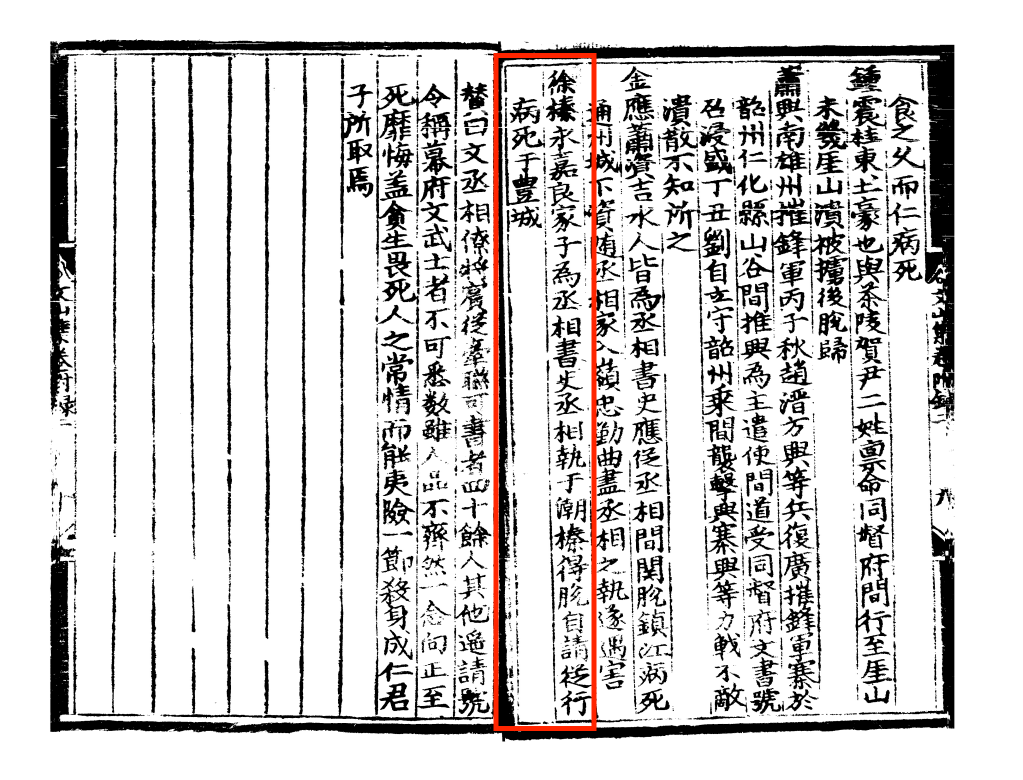 食之父而仁病死
鍾震桂東土豪也與茶陵賀尹二姓稟命同督府間行至厓山
未幾厓山潰被擄後脫歸
蕭興南雄州摧鋒軍丙子秋趙溍方興等兵復廣摧鋒軍寨於
韶州仁化縣山谷間推興為主遣使間道受同督府文書號
召浸盛丁丑劉自立守韶州乘間襲擊興寨興等力戰不敵
潰散不知所之
金應蕭資吉水人皆為丞相書史應從丞相間關脫鎮江病死
通州城下資隨丞相家入嶺忠勤曲盡丞相之執遂遇害
徐榛永嘉良家子為丞相書史丞相執于潮榛得脫自請從行
病死于豐城
贊曰文丞相僚將賓從牽聯可書者四十餘人其他遙請號
令稱幕府文武士者不可悉數雖人品不齊然一念向正至
死靡悔蓋貪生畏死人之常情而能夷險一節殺身成仁君
子所取焉
文山集卷附錄二